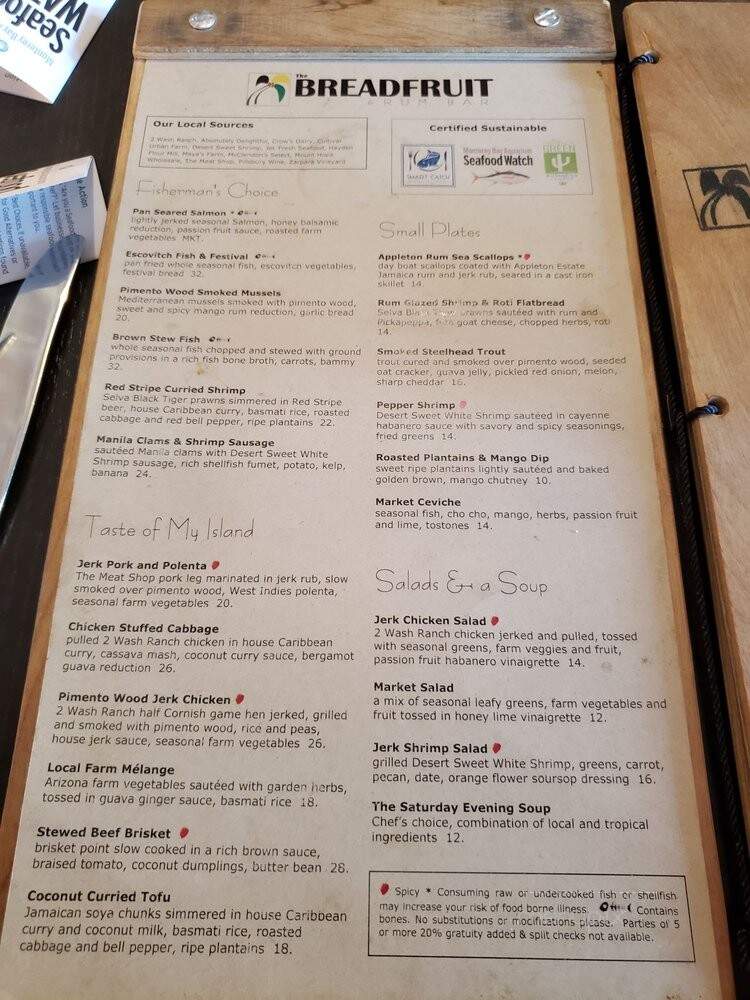 The
BREADFRUIT
& RUM BAR
Our Local Sources
2 Wash Ranch, Absolutely Delightful, Crow's Dairy, Cultivar
Urban Farm, Desert Sweet Shrimp, Fresh Seafood, Hayden
Flour Mill, Maya's Farm, McClendon's Select, Mount Hope
Wholesale, The Meat Shop, Pillsbury Wine, Zarpara Vineyard
Certified Sustainable
SMART CATCH
Monterey Bay Aquarium
Seafood Watch
GREEN
Fisherman's Choice
Pan Seared Salmon *
lightly jerked seasonal Salmon, honey balsamic
reduction, passion fruit sauce, roasted farm
vegetables MKT.
Escovitch Fish & Festival
pan fried whole seasonal fish, escovitch vegetables,
festival bread 32.
Pimento Wood Smoked Mussels
Mediterranean mussels smoked with pimento wood,
sweet and spicy mango rum reduction, garlic bread
20.
Brown Stew Fish
whole seasonal fish chopped and stewed with ground
provisions in a rich fish bone broth, carrots, bammy
32.
Red Stripe Curried Shrimp
Selva Black Tiger prawns simmered in Red Stripe
beer, house Caribbean curry, basmati rice, roasted
cabbage and red bell pepper, ripe plantains 22.
Manila Clams & Shrimp Sausage
sautéed Manila clams with Desert Sweet White
Shrimp sausage, rich shellfish fumet, potato, kelp,
banana 24.
Taste of My Island
Jerk Pork and Polenta
The Meat Shop pork leg marinated in jerk rub, slow
smoked over pimento wood, West Indies polenta,
seasonal farm vegetables 20.
Chicken Stuffed Cabbage
pulled 2 Wash Ranch chicken in house Caribbean
curry, cassava mash, coconut curry sauce, bergamot
guava reduction 26.
Pimento Wood Jerk Chicken
2 Wash Ranch half Cornish game hen jerked, grilled
and smoked with pimento wood, rice and peas,
house jerk sauce, seasonal farm vegetables 26.
Local Farm Mélange
Arizona farm vegetables sautéed with garden herbs,
tossed in guava ginger sauce, basmati rice 18.
Stewed Beef Brisket
brisket point slow cooked in a rich brown sauce,
braised tomato, coconut dumplings, butter bean 28.
Coconut Curried Tofu
Jamaican soya chunks simmered in house Caribbean
curry and coconut milk, basmati rice, roasted
cabbage and bell pepper, ripe plantains 18.
Small Plates
Appleton Rum Sea Scallops *
day boat scallops coated with Appleton Estate
Jamaica rum and jerk rub, seared in a cast iron
skillet 14.
Rum Glazed Shrimp & Roti Flatbread
Selva Black Tiger prawns sautéed with rum and
Pickapeppa, feta goat cheese, chopped herbs, roti
14.
Smoked Steelhead Trout
trout cured and smoked over pimento wood, seeded
oat cracker, guava jelly, pickled red onion, melon,
sharp cheddar 16.
Pepper Shrimp
Desert Sweet White Shrimp sautéed in cayenne
habanero sauce with savory and spicy seasonings,
fried greens 14.
Roasted Plantains & Mango Dip
sweet ripe plantains lightly sautéed and baked
golden brown, mango chutney 10.
Market Ceviche
seasonal fish, cho cho, mango, herbs, passion fruit
and lime, tostones 14.
Salads & a Soup
Jerk Chicken Salad
2 Wash Ranch chicken jerked and pulled, tossed
with seasonal greens, farm veggies and fruit,
passion fruit habanero vinaigrette 14.
Market Salad
a mix of seasonal leafy greens, farm vegetables and
fruit tossed in honey lime vinaigrette 12.
Jerk Shrimp Salad
grilled Desert Sweet White Shrimp, greens, carrot,
pecan, date, orange flower soursop dressing 16.
The Saturday Evening Soup
Chef's choice, combination of local and tropical
ingredients 12.
Spicy * Consuming raw or undercooked fish or shellfish
may increase your risk of food borne illness. Contains
bones. No substitutions or modifications please. Parties of 5
or more 20% gratuity added & split checks not available.
Seafood
WA
Monterey Bay